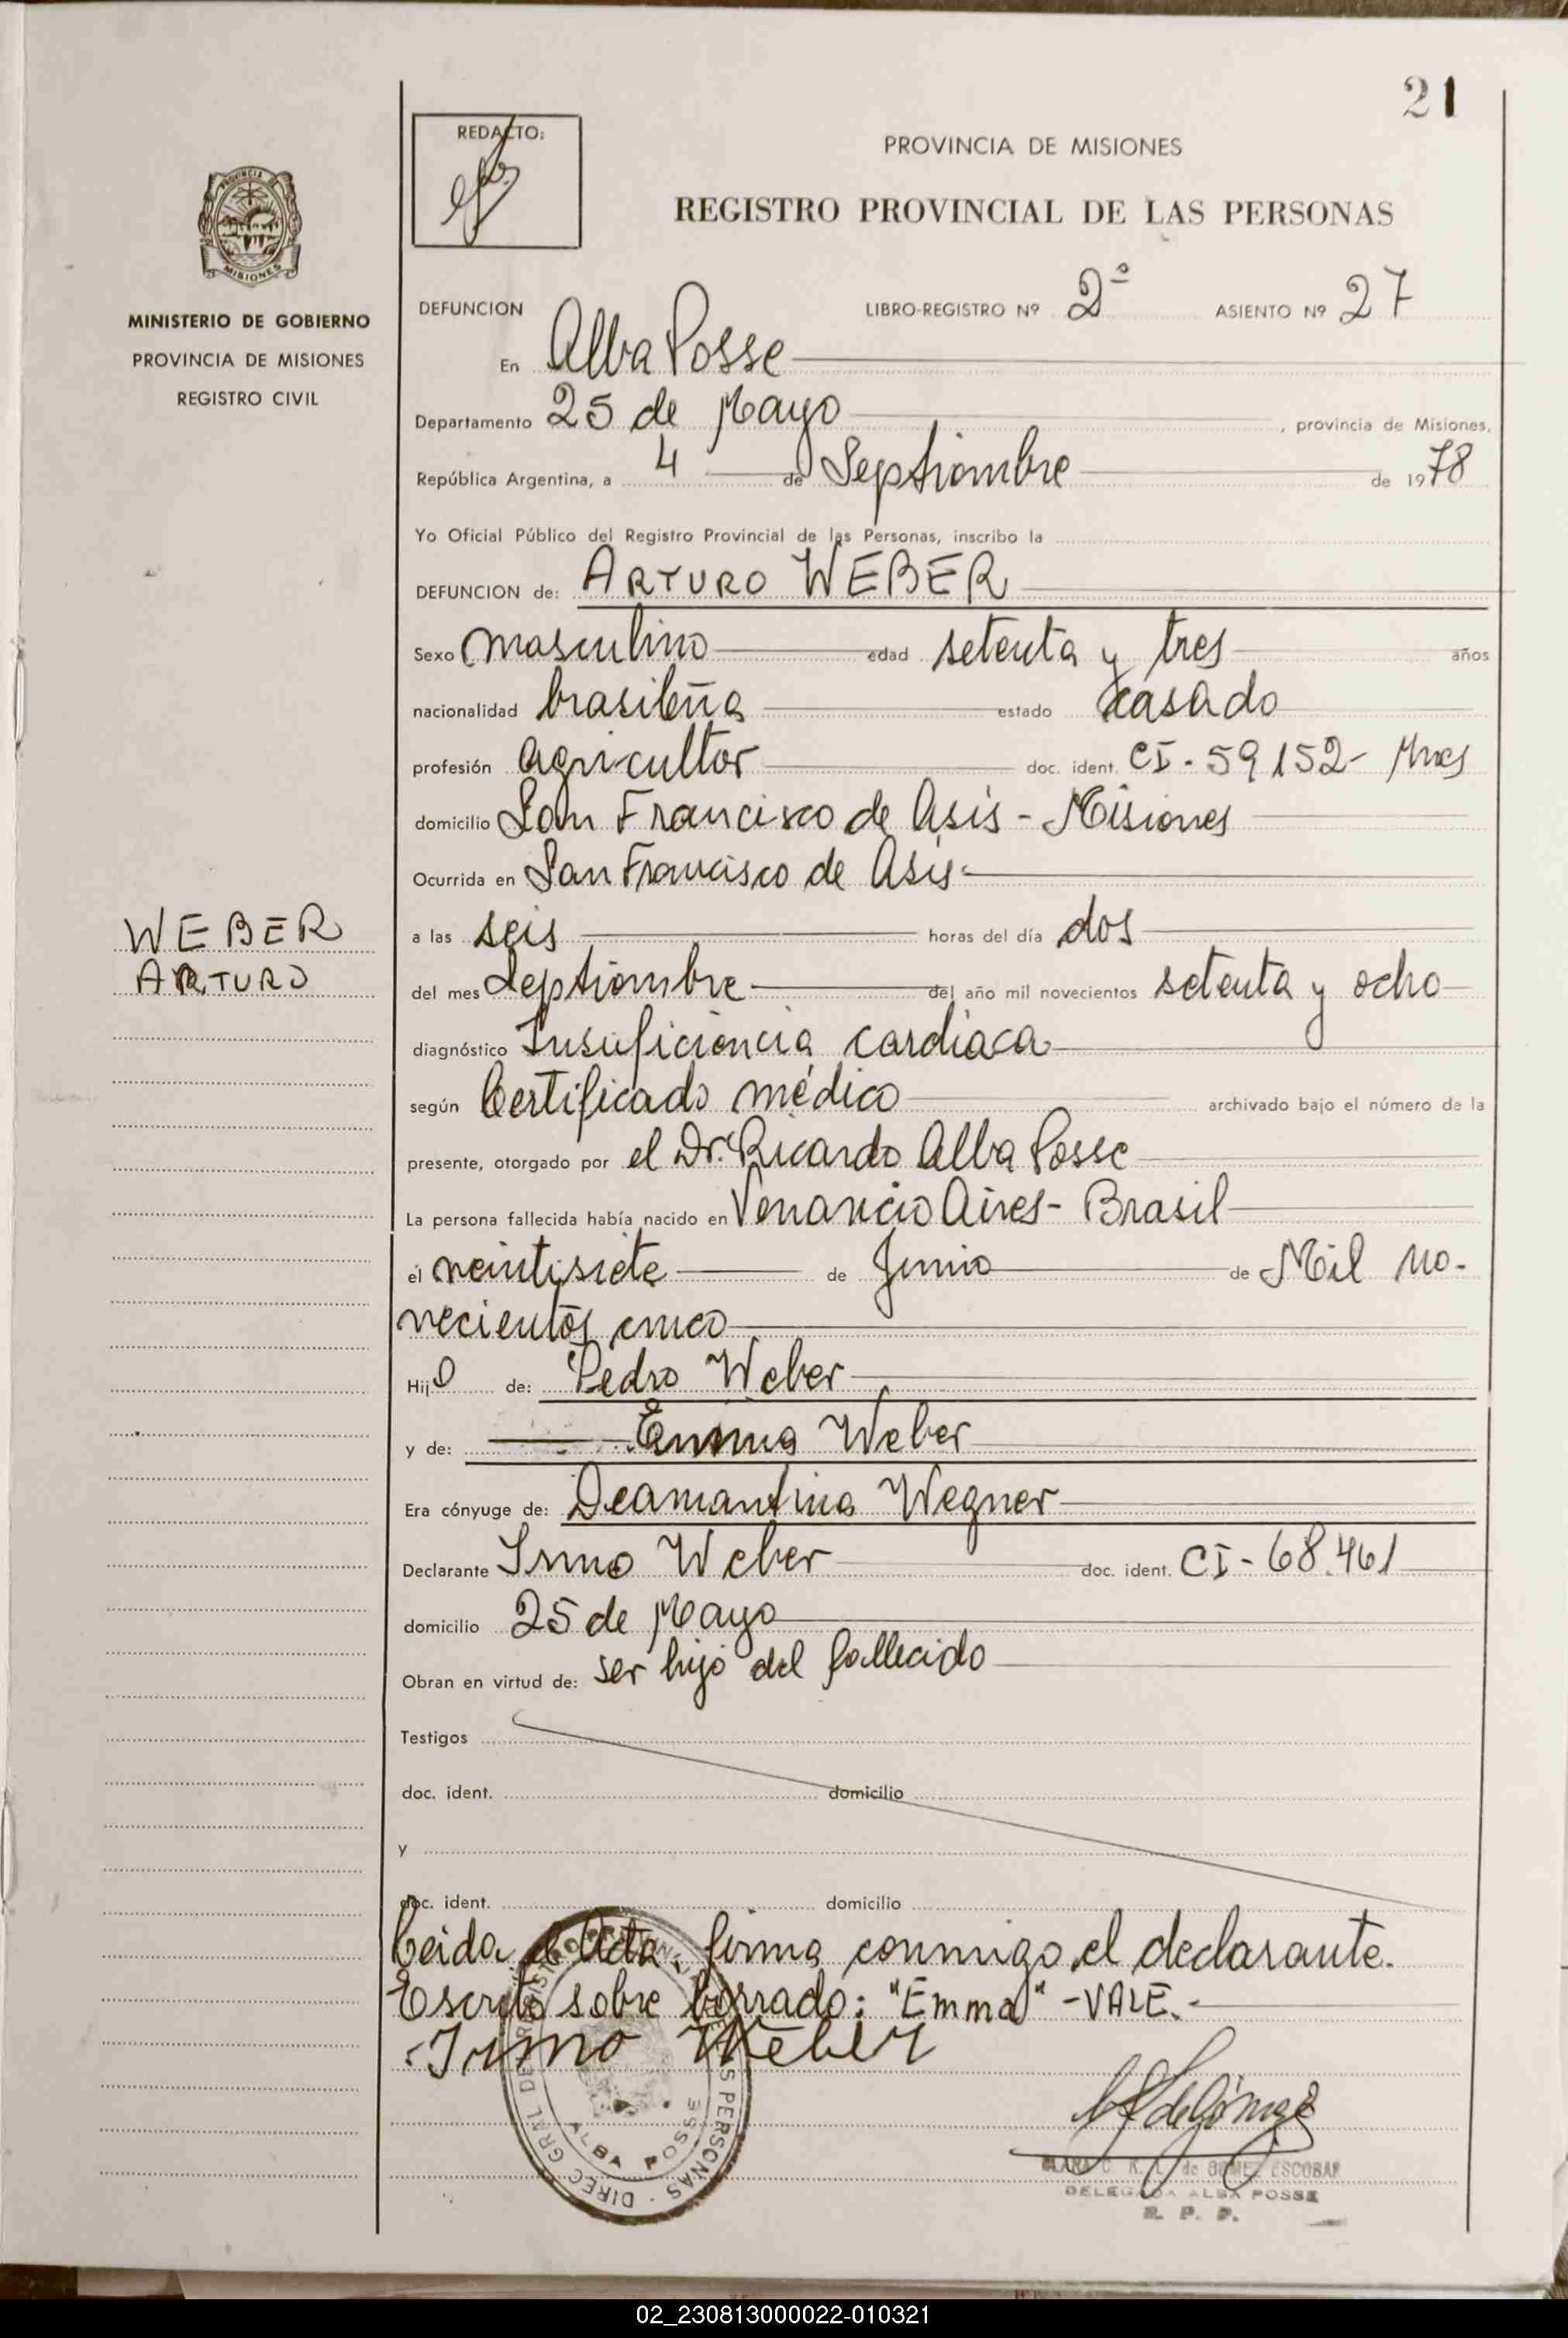 21
REDACTO:
PROVINCIA DE MISIONES
REGISTRO PROVINCIAL DE LAS PERSONAS
PROVINCIA DE
MISIONES
MINISTERIO DE GOBIERNO
PROVINCIA DE MISIONES
REGISTRO CIVIL
DEFUNCION LIBRO-REGISTRO Nº 2º ASIENTO Nº 27
En Alba Posse
Departamento 25 de Mayo, provincia de Misiones,
República Argentina, a 4 de Septiembre de 1978
Yo Oficial Público del Registro Provincial de las Personas, inscribo la
DEFUNCION de: ARTURO WEBER
Sexo masculino edad setenta y tres años
nacionalidad brasileña estado casado
profesión agricultor doc. ident. CI - 59152 - Mnes
domicilio San Francisco de Asís - Misiones
Ocurrida en San Francisco de Asís -
WEBER
ARTURO
a las seis horas del día dos
del mes Septiembre del año mil novecientos setenta y ocho
diagnóstico Insuficiencia cardíaca
según Certificado médico archivado bajo el número de la
presente, otorgado por el Dr. Ricardo Alba Posse
La persona fallecida había nacido en Venancio Aires - Brasil
el veintisiete de Junio de Mil no-
vecientos cinco
Hijo de: Pedro Weber
y de: Emma Weber
Era cónyuge de: Deamantina Wegner
Declarante Irmo Weber doc. ident. CI - 68.461
domicilio 25 de Mayo
Obran en virtud de: ser hijo del fallecido
Testigos
doc. ident. domicilio
y
doc. ident. domicilio
Leida el Acta, firma conmigo el declarante.
Escrito sobre borrado: "Emma" - VALE. -
Irmo Weber
DIREC GRAL DE REGISTRO PERSONAS
ALBA POSSE
de Gómez
CLARA C. K. L. de GOMEZ ESCOBAR
DELEGADA ALBA POSSE
R. P. P.
02_230813000022-010321